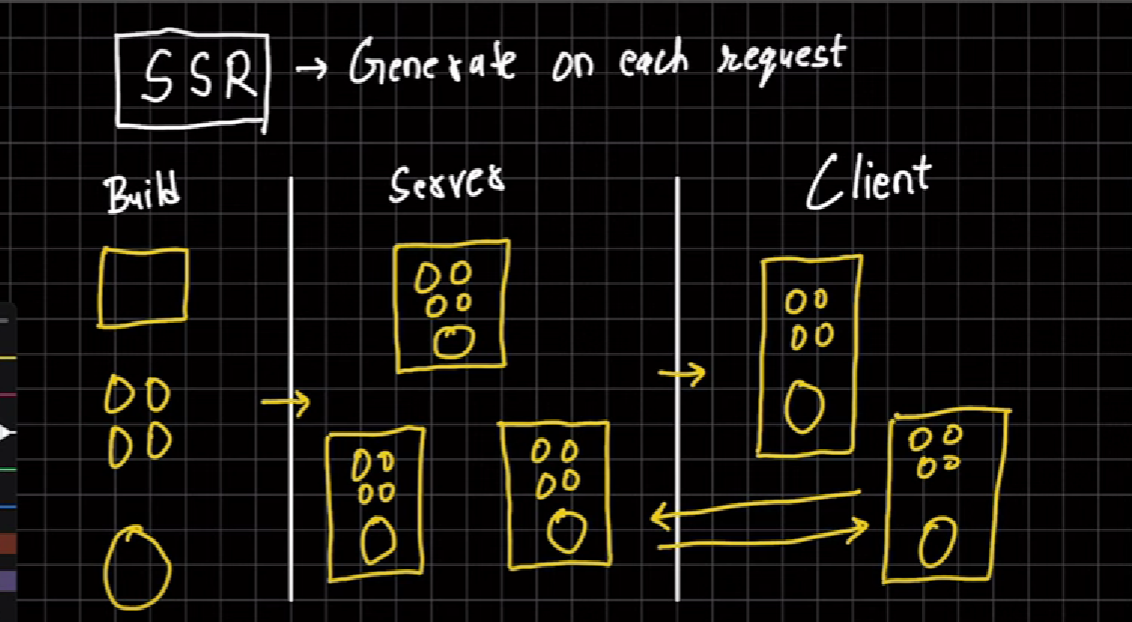 SSR → Generate on each request
Build
Server
Client